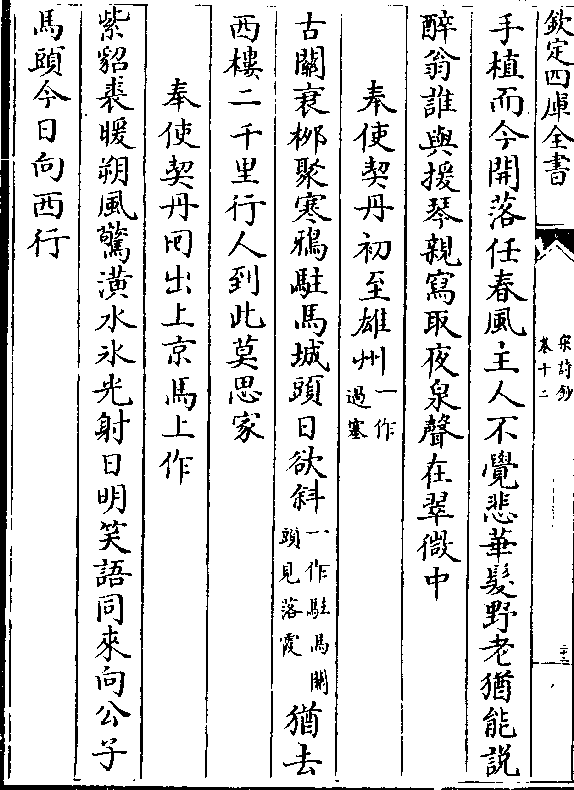 欽定四庫全書
宋詩鈔
卷十二
二十三
手植而今開落任春風主人不覺悲華髮野老猶能説
醉翁誰與援琴親寫取夜泉聲在翠微中
奉使契丹初至雄州一作過塞
古關衰栁聚寒鴉駐馬城頭日欲斜一作駐馬關頭見落霞猶去
西樓二千里行人到此莫思家
奉使契丹囘出上京馬上作
紫貂裘暖朔風驚潢水氷光射日明笑語同來向公子
馬頭今日向西行